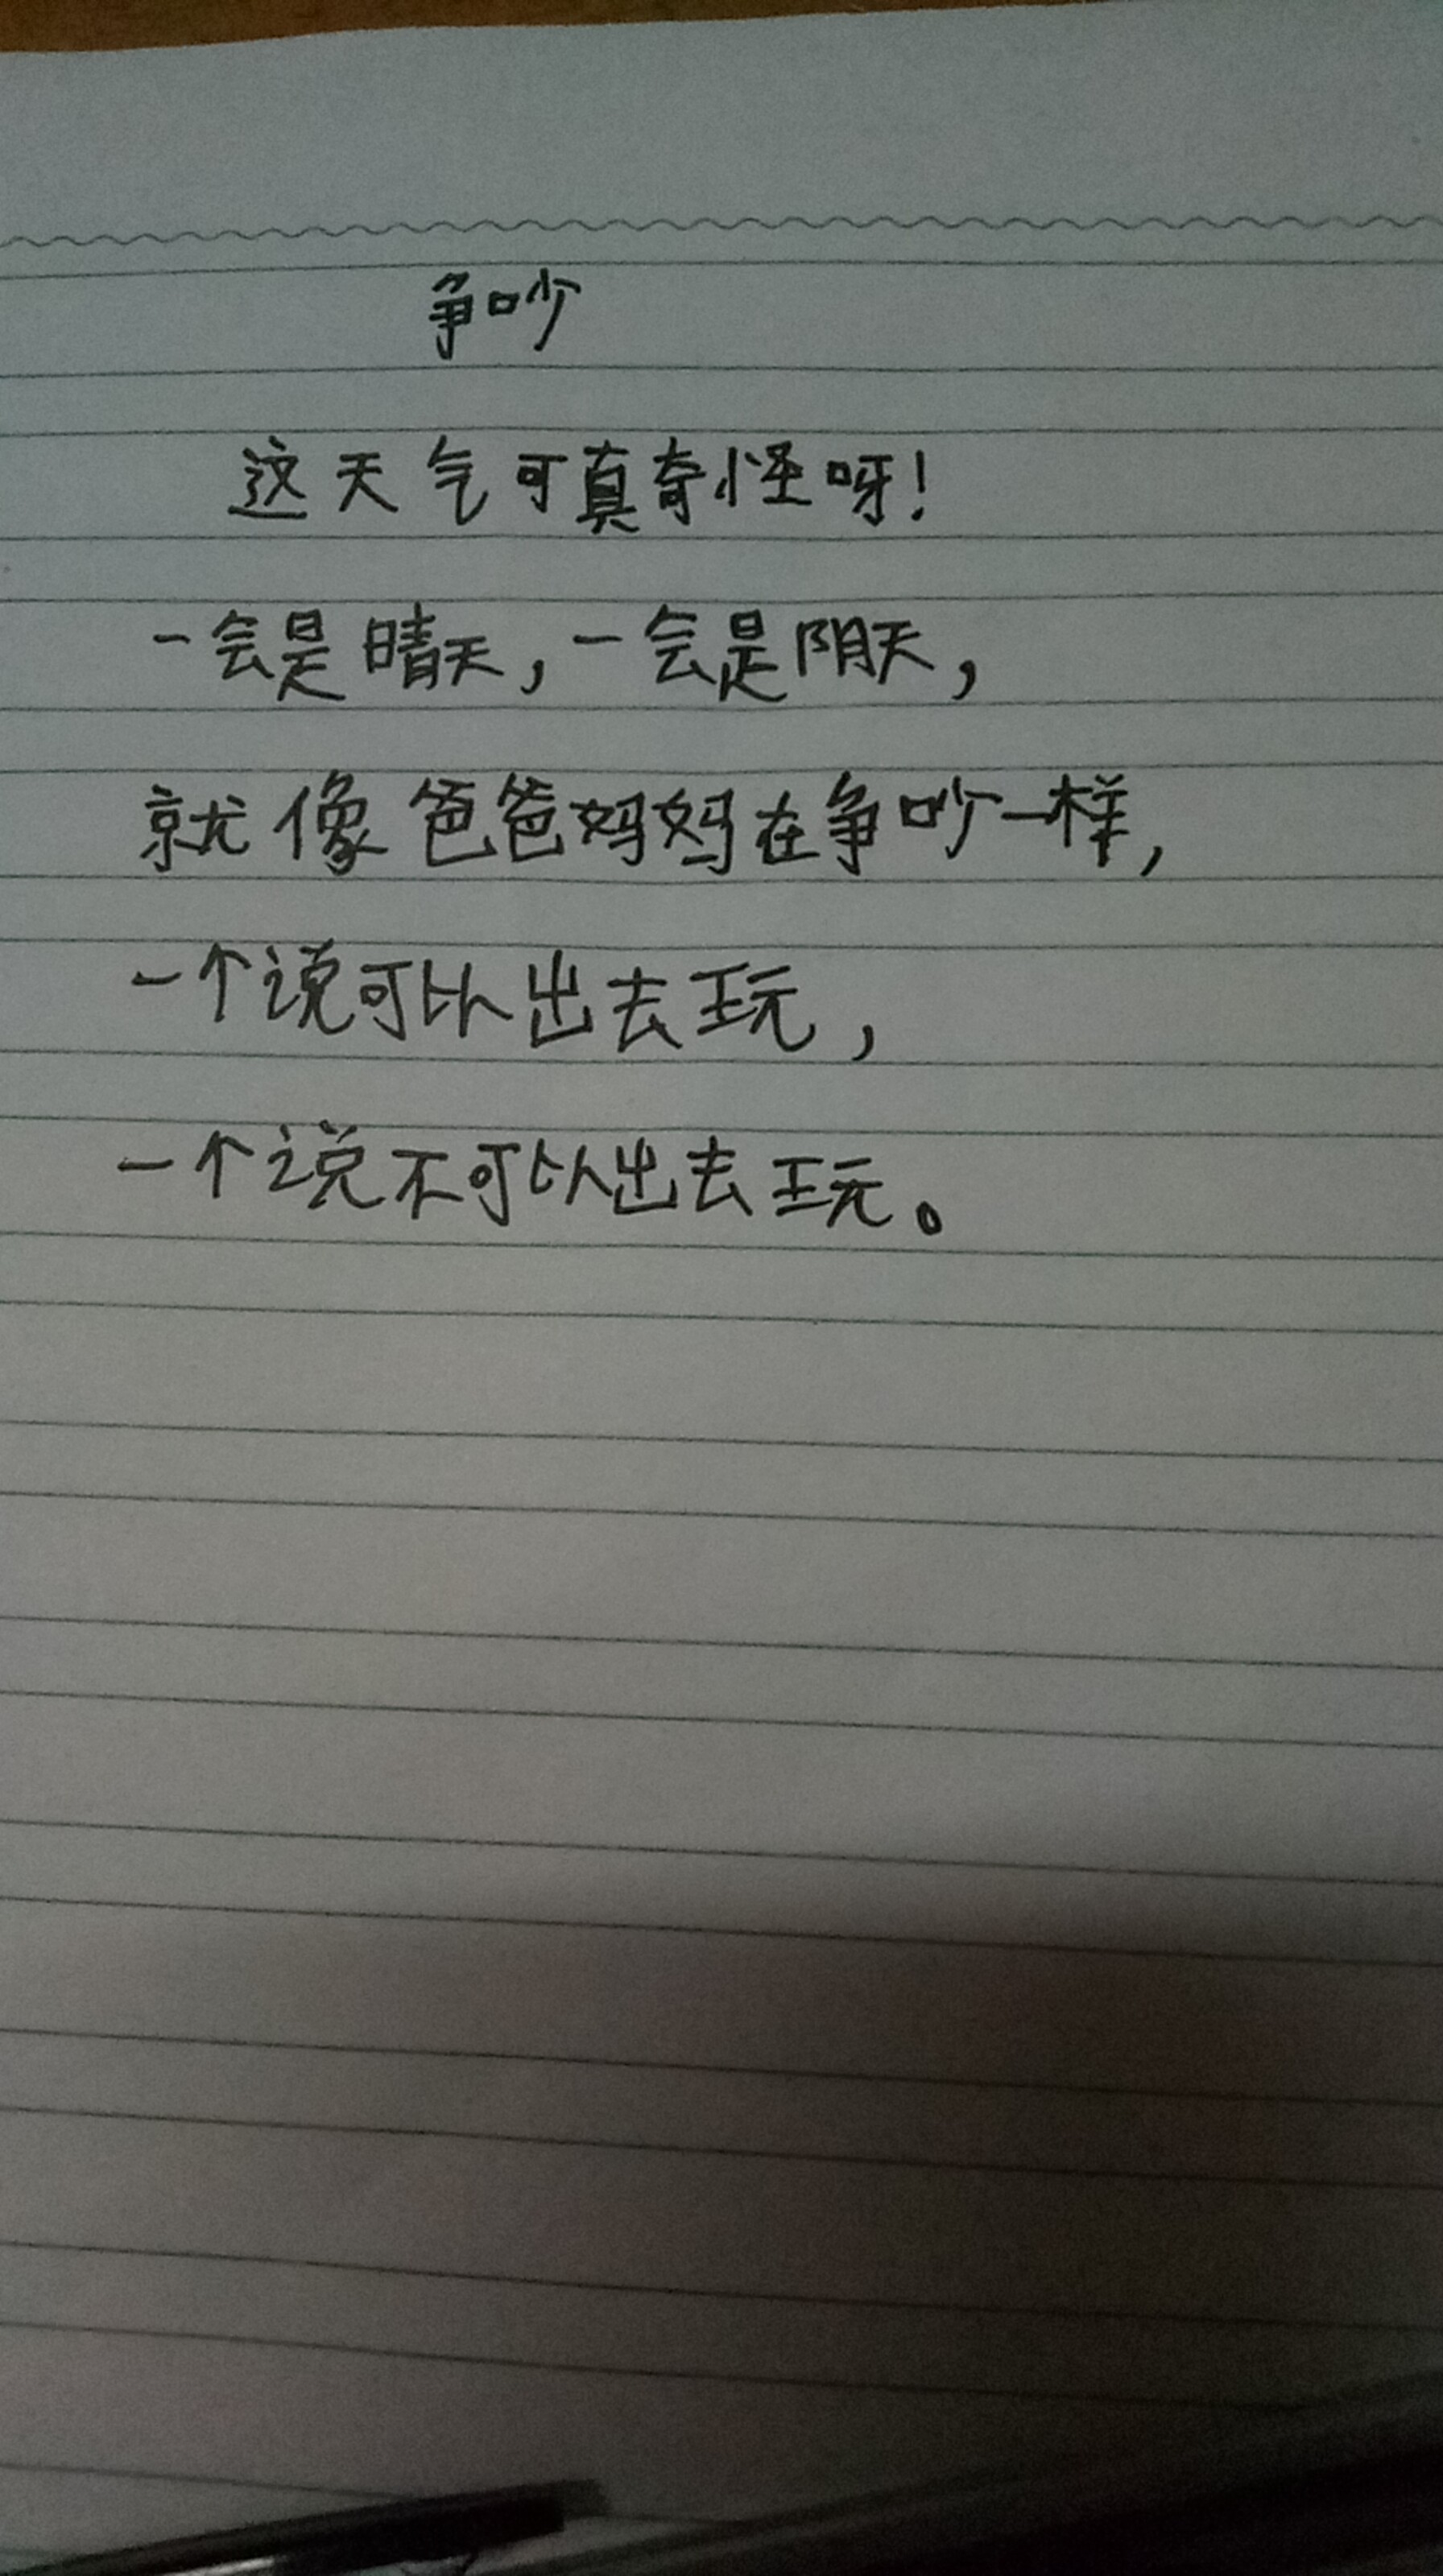 争吵
这天气可真奇怪呀！
一会是晴天，一会是阴天，
就像爸爸妈妈在争吵一样，
一个说可以出去玩，
一个说不可以出去玩。